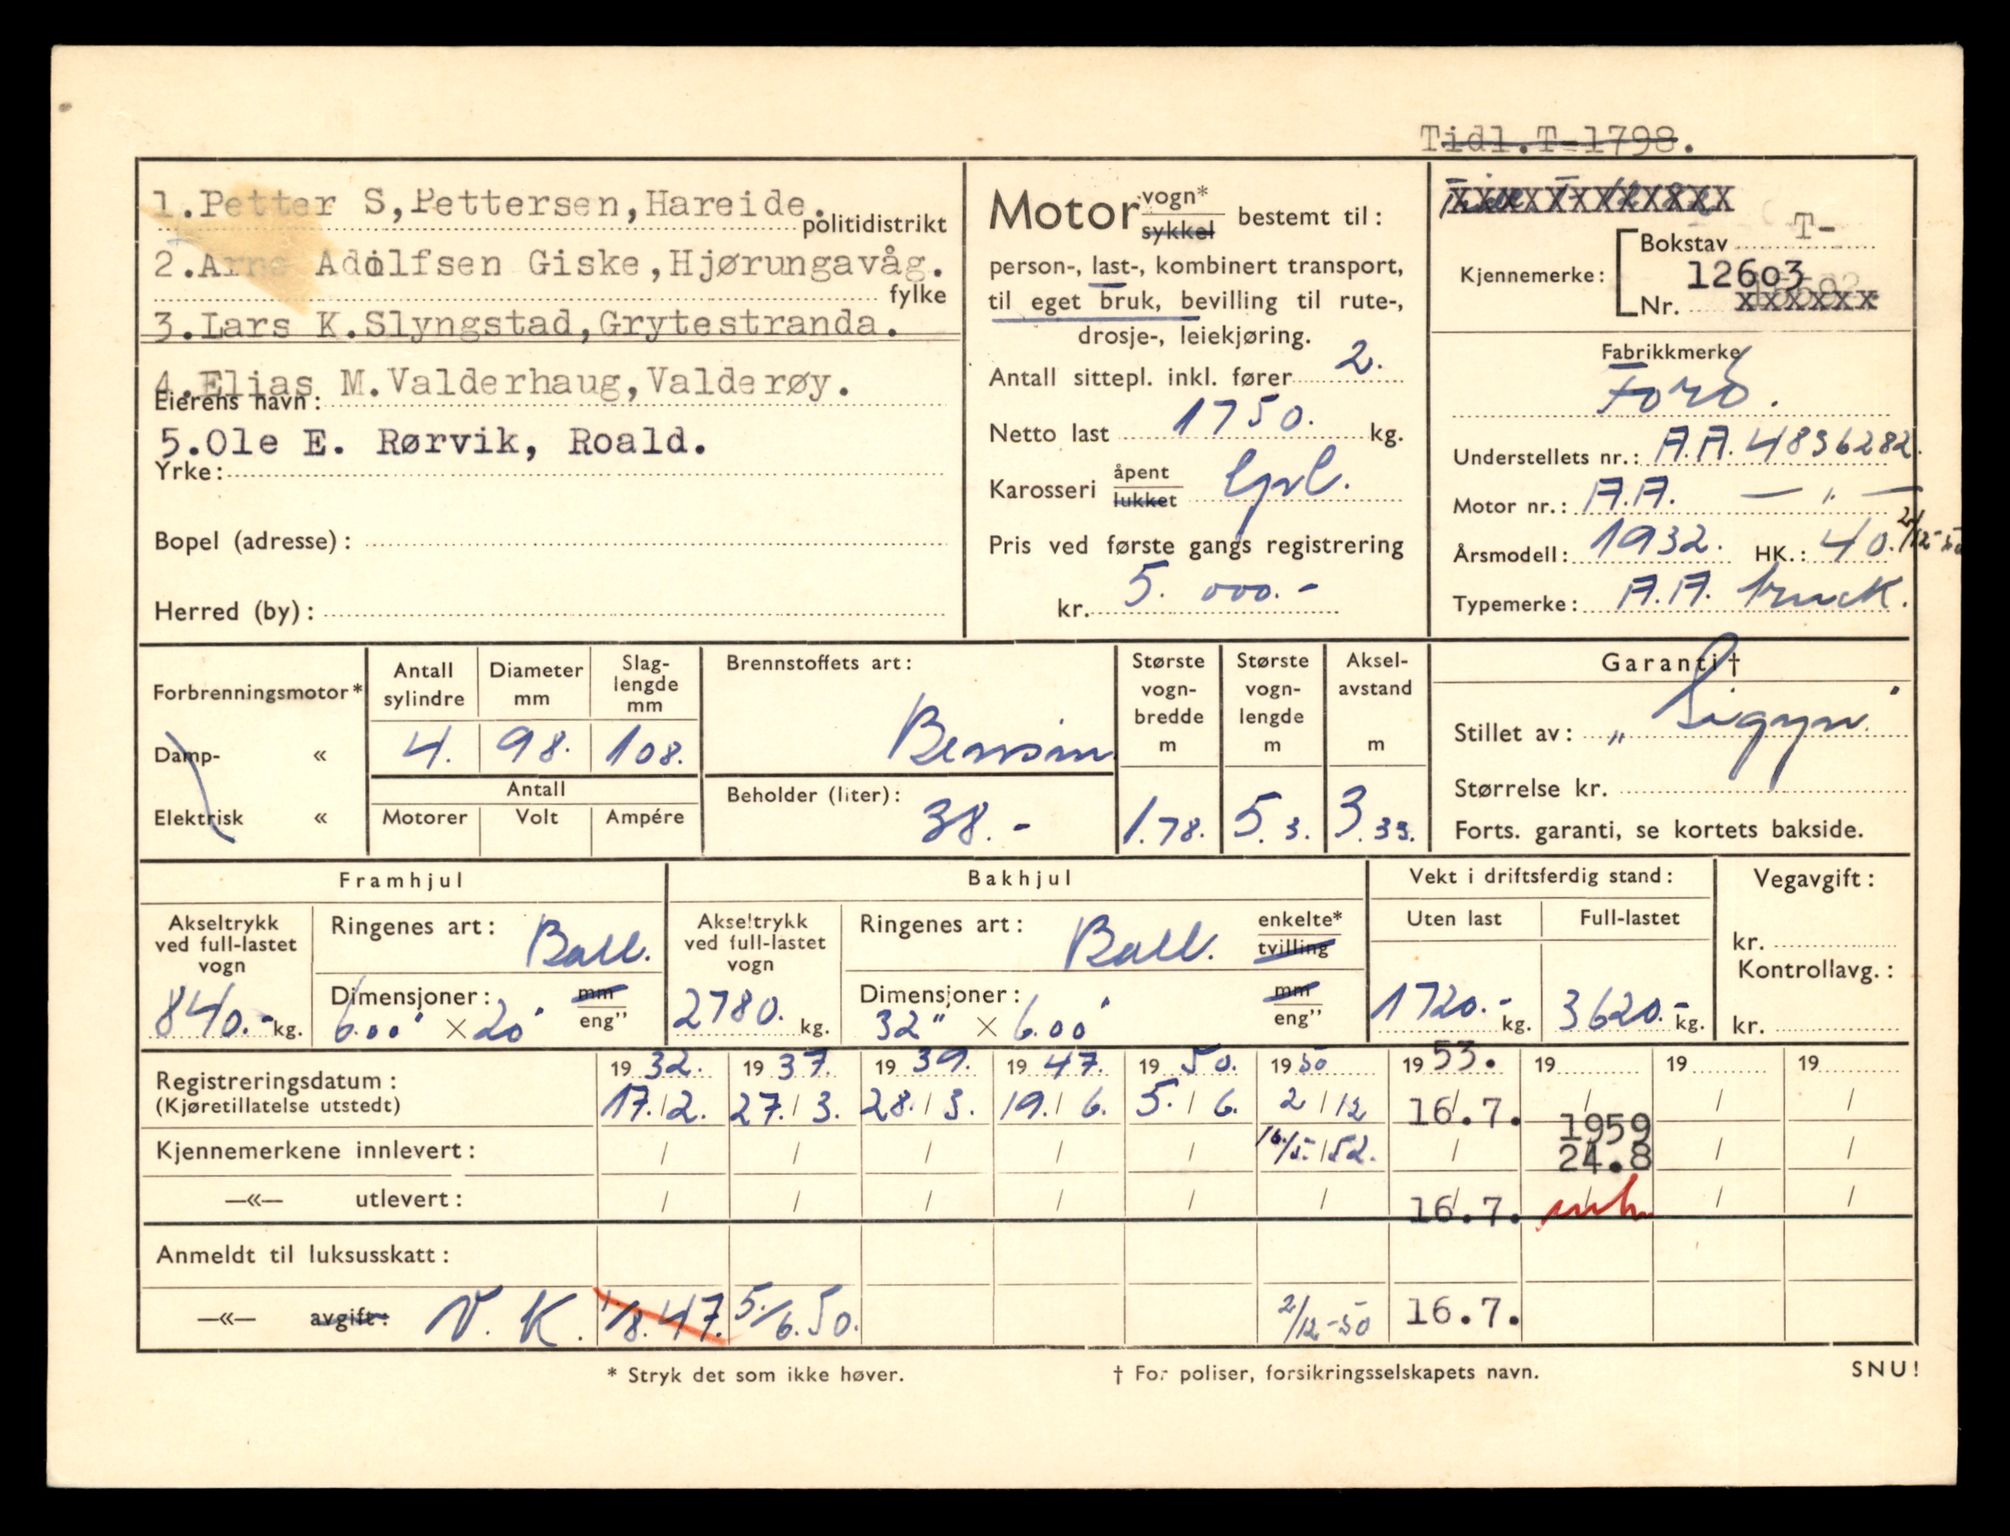 Tidl.T-1798.
1.Petter S,Pettersen,Hareide.
politidistrikt
2.Arne Adolfsen Giske,Hjørungavåg.
fylke
3.Lars K.Slyngstad,Grytestranda.
4.Elias M.Valderhaug,Valderøy.
Eierens navn:
5.Ole E. Rørvik, Roald.
Yrke:
Bopel (adresse):
Herred (by):
Motor vogn* sykkel bestemt til:
person-, last-, kombinert transport,
til eget bruk, bevilling til rute-,
drosje-, leiekjøring.
Antall sittepl. inkl. fører 2.
Netto last 1750. kg.
Karosseri åpent lukket
Pris ved første gangs registrering
kr. 5.000.-
xxxxxxxxxxxxx
Kjennemerke: Bokstav T-
12603
Nr. xxxxxx
Fabrikkmerke
Ford.
Understellets nr.: A.A. 4836282.
Motor nr.: A.A. — " —
Årsmodell: 1932. HK.: 40. 2/12-50
Typemerke: A.A. truck.
Forbrenningsmotor*
Damp- «
Elektrisk «
Antall sylindre
4.
Diameter mm
98.
Slag-
lengde
mm
108.
Antall
Motorer Volt Ampére
Brennstoffets art:
Bensin
Beholder (liter):
38.-
Største
vogn-
bredde
m
1.78.
Største
vogn-
lengde
m
5.3.
Aksel-
avstand
m
3.33.
Garanti †
Stillet av: „Sigyn"
Størrelse kr.
Forts. garanti, se kortets bakside.
Framhjul
Akseltrykk
ved full-lastet
vogn
840.- kg.
Ringenes art: Ball.
Dimensjoner: mm eng"
6.00" × 20"
Bakhjul
Akseltrykk
ved full-lastet
vogn
2780. kg.
Ringenes art: Ball. enkelte* tvilling
Dimensjoner: mm eng"
32" × 6.00"
Vekt i driftsferdig stand:
Uten last Full-lastet
1720.- kg. 3620.- kg.
Vegavgift:
kr.
Kontrollavg.:
kr.
19 32. 19 37. 19 39. 19 47. 19 50. 19 50 19 53. 19 19 19
Registreringsdatum:
(Kjøretillatelse utstedt) 17./2. 27./3. 28./3. 19./6. 5./6. 2/12 16.7. / / /
1959
Kjennemerkene innlevert: / / / / / 16/5.52. / 24.8 / /
—«— utlevert: / / / / / / 16.7. / /
Anmeldt til luksusskatt:
—«— avgift: V.K. 1/8.47. 5./6.50. 2/12-50 16.7.
* Stryk det som ikke høver.
† For poliser, forsikringsselskapets navn.
SNU!